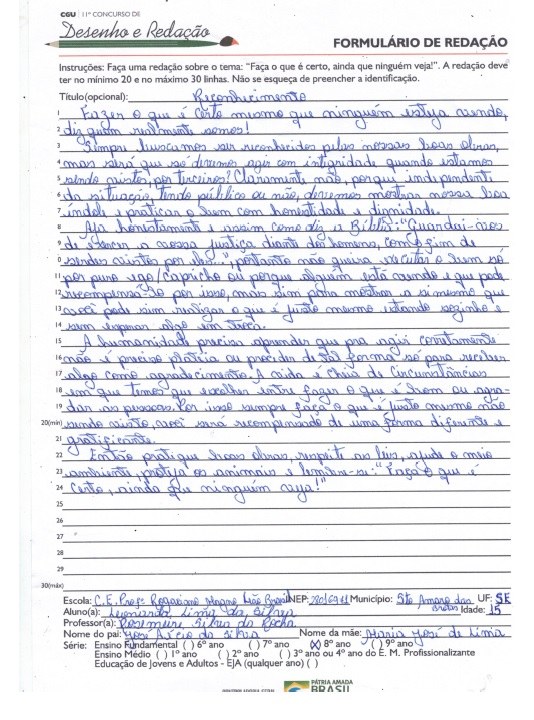 CGU | 11º CONCURSO DE
Desenho e Redação
FORMULÁRIO DE REDAÇÃO
Instruções: Faça uma redação sobre o tema: "Faça o que é certo, ainda que ninguém veja!". A redação deve
ter no mínimo 20 e no máximo 30 linhas. Não se esqueça de preencher a identificação.
Título(opcional): Reconhecimento
1 Fazer o que é certo mesmo que ninguém esteja vendo,
2 diz quem realmente somos!
3 Sempre buscamos ser reconhecidos pelas nossas boas obras,
4 mas será que só devemos agir com integridade quando estamos
5 sendo vistos, por terceiros? Claramente não, porque independente
6 da situação, tendo público ou não, devemos mostrar nossa boa
7 índole e praticar o bem com honestidade e dignidade.
8 Aja honestamente assim como diz a Bíblia: "Guardai-vos
9 de exercer a vossa justiça diante dos homens, com o fim de
10 serdes vistos por eles...", portanto não queira executar o bem só
11 por puro ego/capricho ou porque alguém está vendo e que pode
12 recompensa-lo por isso, mas sim para mostrar a si mesmo que
13 você pode sim realizar o que é justo mesmo estando sozinho e
14 sem esperar algo em troca.
15 A humanidade precisa aprender que pra agir corretamente
16 não é preciso platéia ou proceder de tal forma só para receber
17 algo como agradecimento. A vida é cheia de circunstâncias
18 em que temos que escolher entre fazer o que é bom ou agra-
19 dar as pessoas. Por isso sempre faça o que é justo mesmo não
20(min) sendo visto, você será recompensado de uma forma diferente e
21 gratificante.
22 Então pratique boas obras, respeite as leis, ajude o meio
23 ambiente, proteja os animais e lembre-se: "Faça o que é
24 certo, ainda que ninguém veja!"
25
26
27
28
29
30(máx)
Escola: C.E. Profº Rogaciano Magno Leão Brasil INEP: Município: Sto Amaro das Brotas UF: SE
Aluno(a): Leonardo Lima da Silva Idade: 15
Professor(a): Rosemeire Silva da Rocha
Nome do pai: José Aécio da Silva Nome da mãe: Maria José de Lima
Série: Ensino Fundamental ( ) 6º ano ( ) 7º ano (X) 8º ano ( ) 9º ano
Ensino Médio ( ) 1º ano ( ) 2º ano ( ) 3º ano ou 4º ano do E. M. Profissionalizante
Educação de Jovens e Adultos - EJA (qualquer ano) ( )
PÁTRIA AMADA
BRASIL